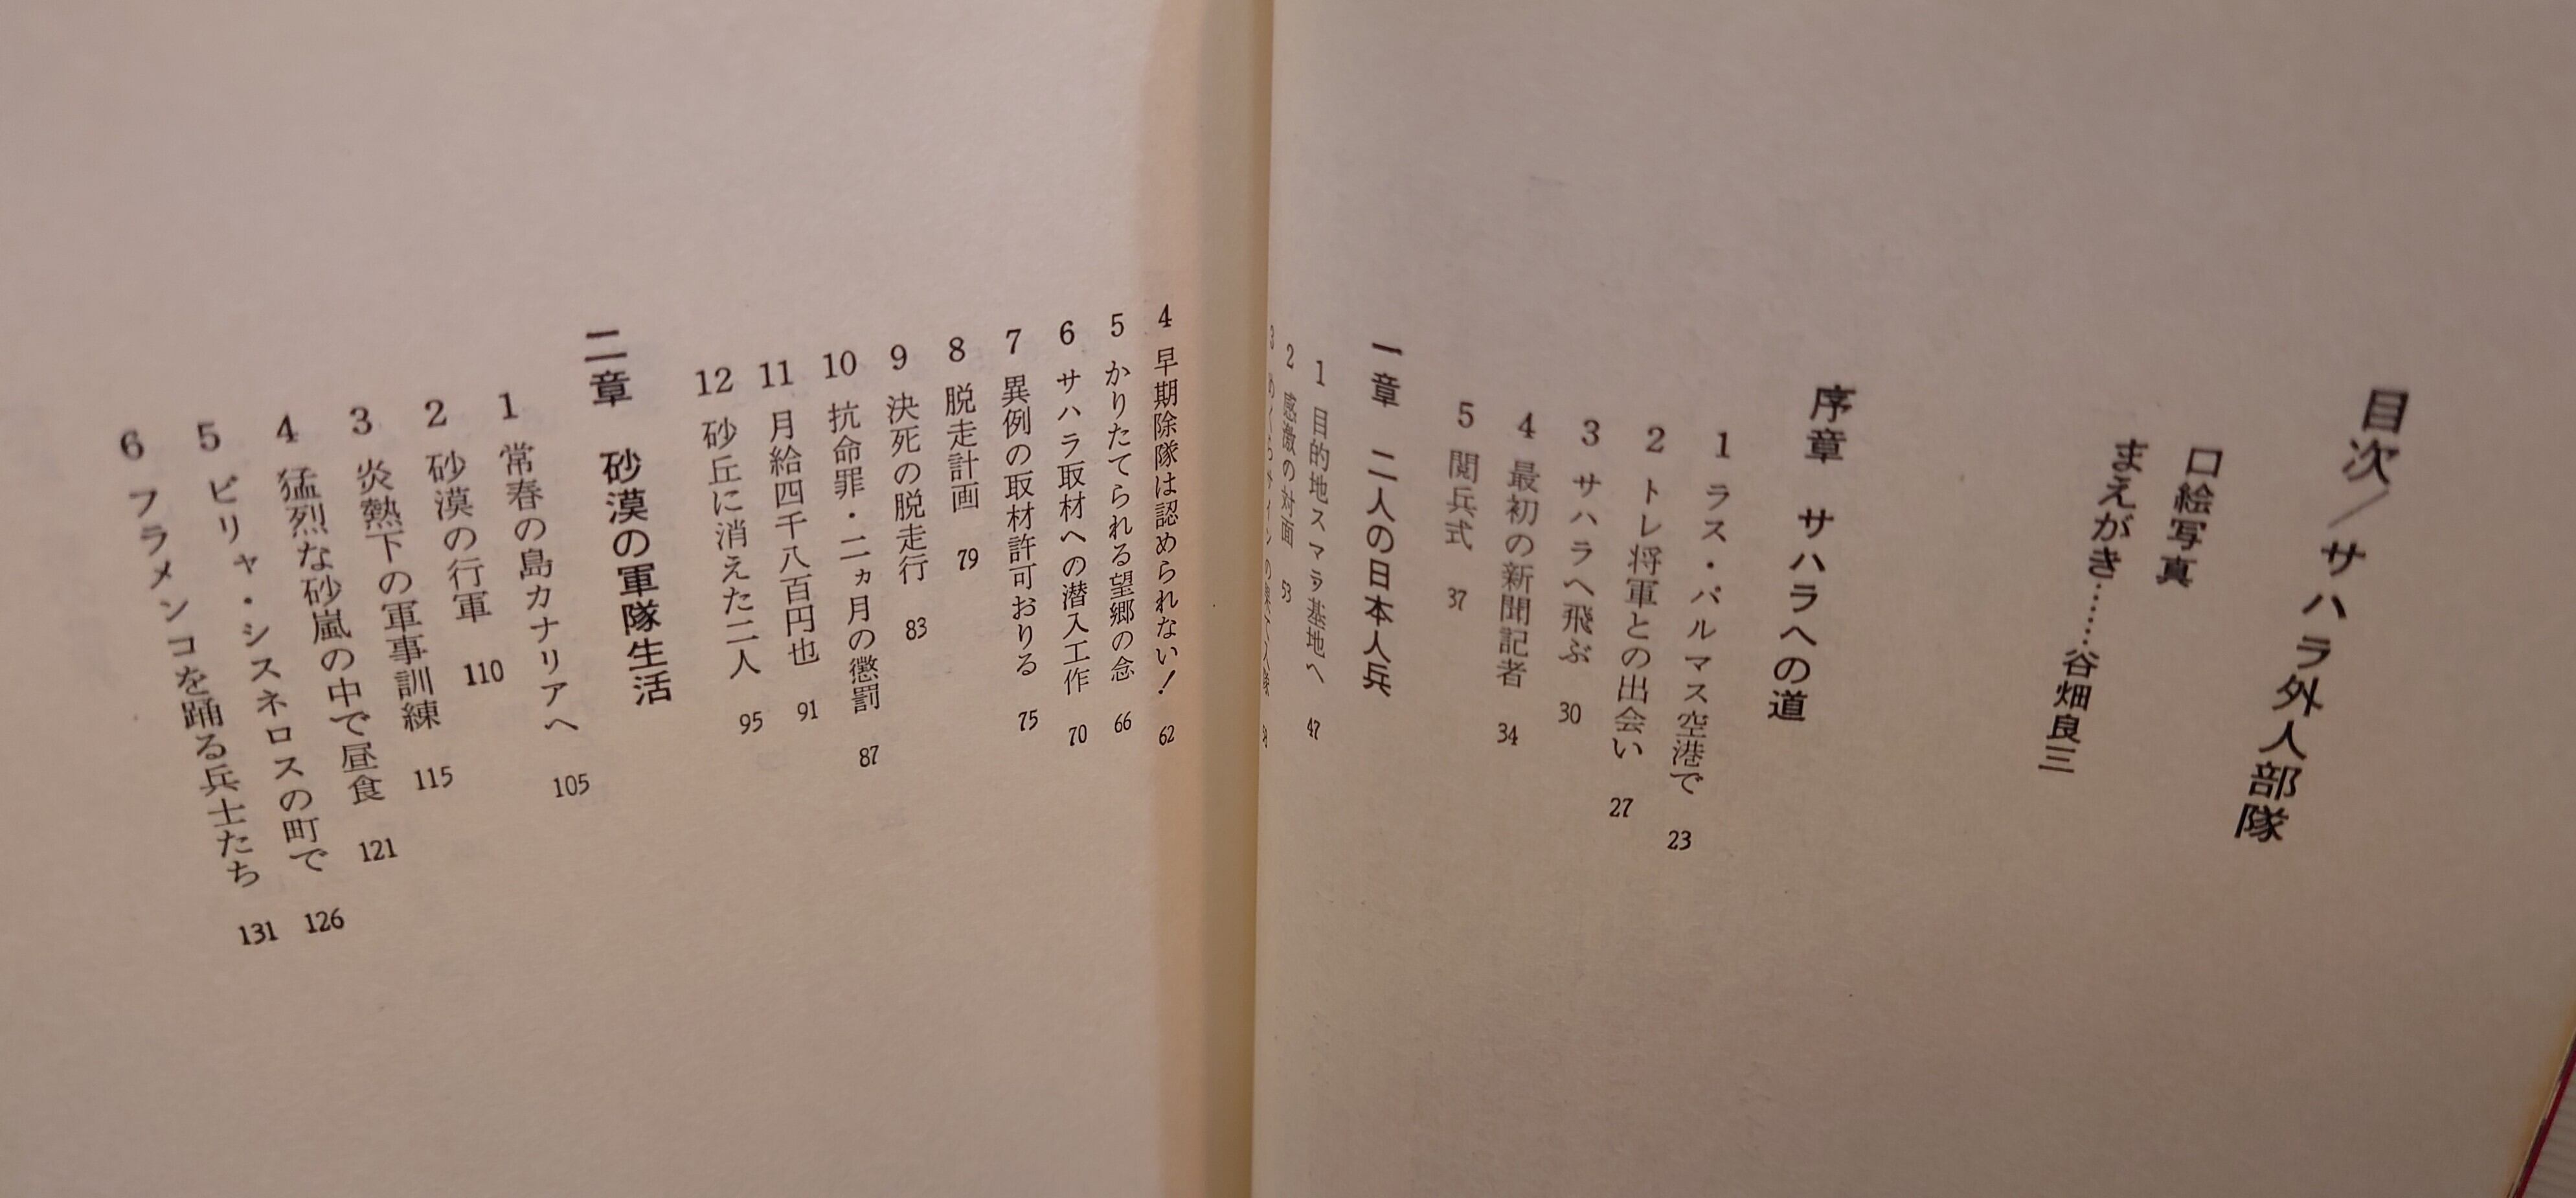 目次／サハラ外人部隊
口絵写真
まえがき……谷畑良三
序章 サハラへの道
1 ラス・パルマス空港で 23
2 トレ将軍との出会い 27
3 サハラへ飛ぶ 30
4 最初の新聞記者 34
5 閲兵式 37
一章 二人の日本人兵
1 目的地スマラ基地へ 47
2 感激の対面 53
3 めくらサインの果て入隊
4 早期除隊は認められない！ 62
5 かりたてられる望郷の念 66
6 サハラ取材への潜入工作 70
7 異例の取材許可おりる 75
8 脱走計画 79
9 決死の脱走行 83
10 抗命罪・二ヵ月の懲罰 87
11 月給四千八百円也 91
12 砂丘に消えた二人 95
二章 砂漠の軍隊生活
1 常春の島カナリアへ 105
2 砂漠の行軍 110
3 炎熱下の軍事訓練 115
4 猛烈な砂嵐の中で昼食 121
5 ビリャ・シスネロスの町で 126
6 フラメンコを踊る兵士たち 131